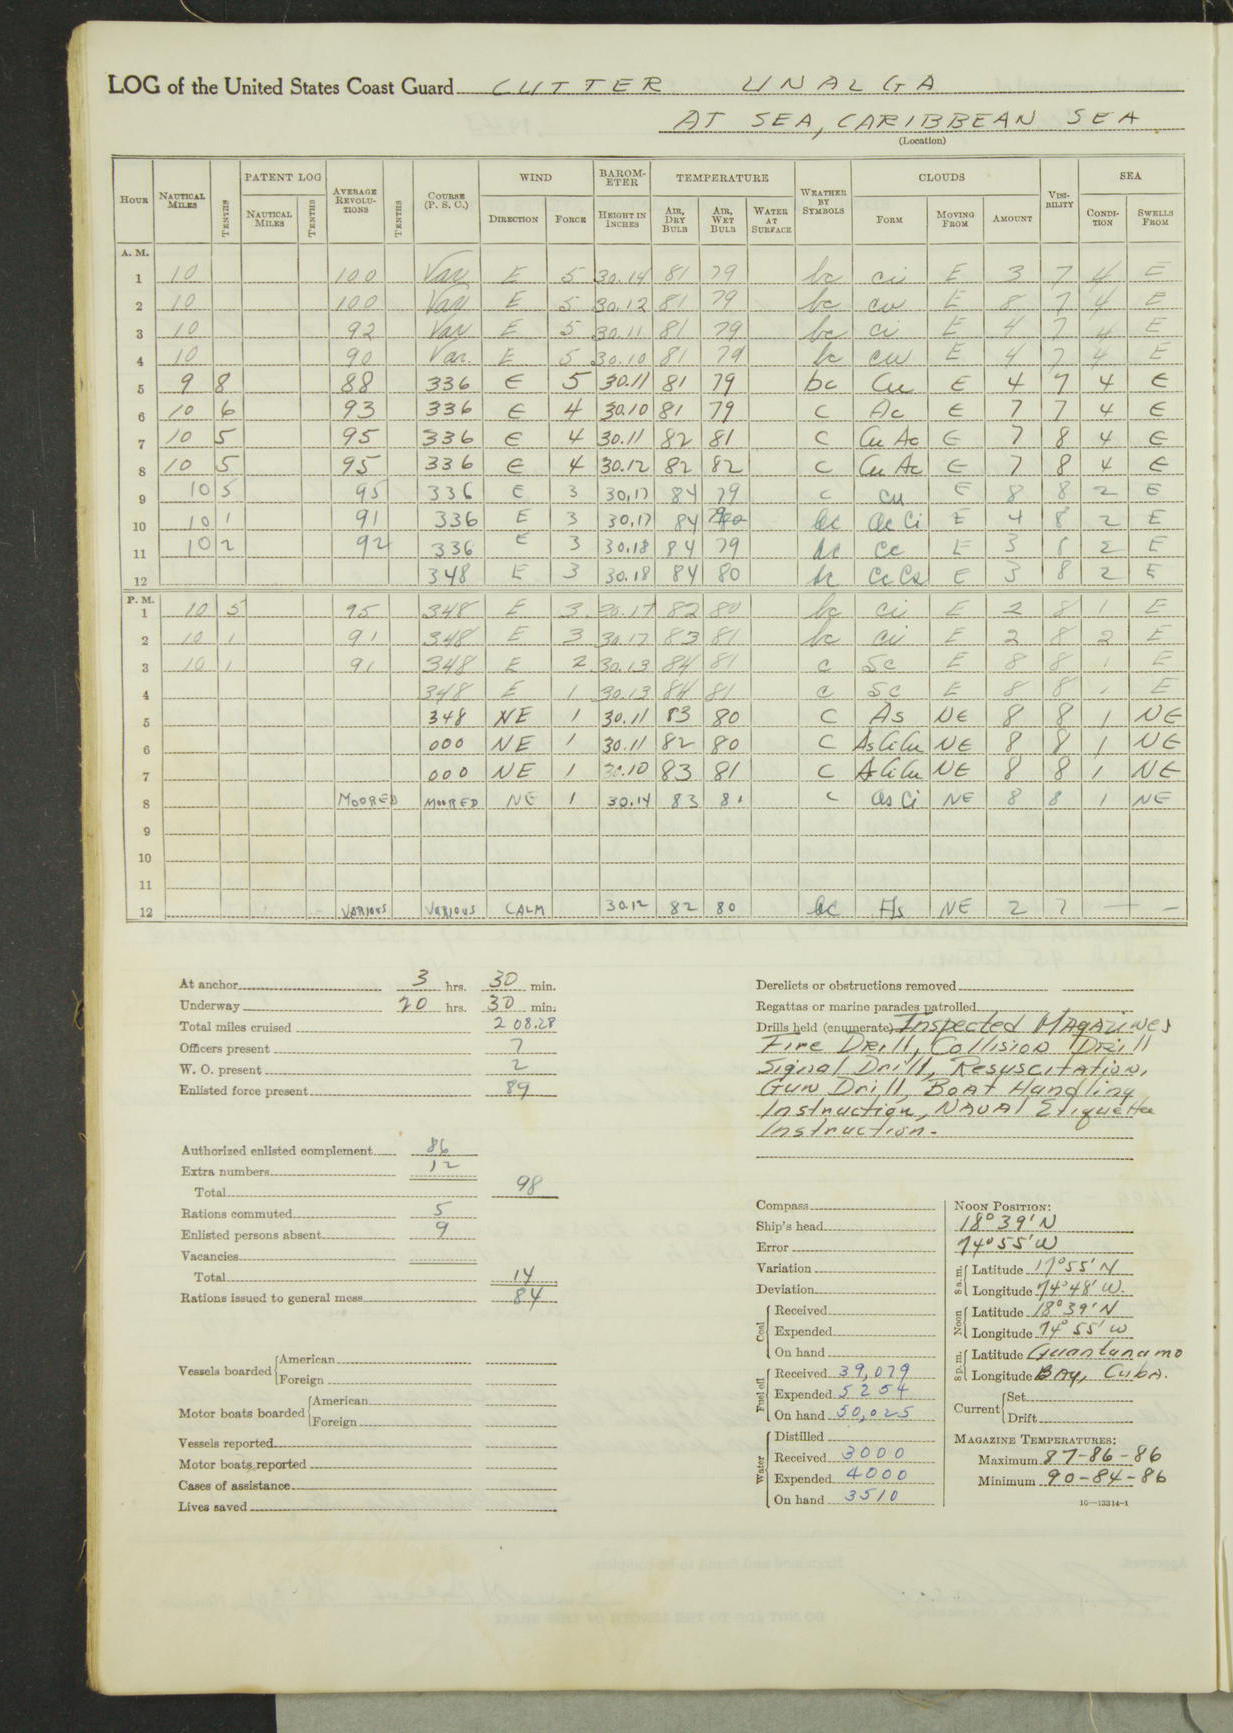 LOG of the United States Coast Guard CUTTER UNALGA
AT SEA, CARIBBEAN SEA
(Location)
HOUR NAUTICAL MILES TENTHS PATENT LOG NAUTICAL MILES TENTHS AVERAGE REVOLUTIONS TENTHS COURSE (P. S. C.) WIND DIRECTION FORCE BAROMETER HEIGHT IN INCHES TEMPERATURE AIR, DRY BULB AIR, WET BULB WATER AT SURFACE WEATHER BY SYMBOLS CLOUDS FORM MOVING FROM AMOUNT VISIBILITY SEA CONDITION SWELLS FROM
A. M.
1 10 100 Var E 5 30.14 81 79 bc ci E 3 7 4 E
2 10 100 Var E 5 30.12 81 79 bc cu E 8 7 4 E
3 10 92 Var E 5 30.11 81 79 bc ci E 4 7 4 E
4 10 90 Var. E 5 30.10 81 79 bc cu E 4 7 4 E
5 9 8 88 336 E 5 30.11 81 79 bc Cu E 4 7 4 E
6 10 6 93 336 E 4 30.10 81 79 C Ac E 7 7 4 E
7 10 5 95 336 E 4 30.11 82 81 C Cu Ac E 7 8 4 E
8 10 5 95 336 E 4 30.12 82 82 C Cu Ac E 7 8 4 E
9 10 5 95 336 E 3 30.17 84 79 c cu E 8 8 2 E
10 10 1 91 336 E 3 30.17 84 bc Ac Ci E 4 8 2 E
11 10 2 92 336 E 3 30.18 84 79 bc Cc E 3 8 2 E
12 348 E 3 30.18 84 80 bc Cc Cs E 3 8 2 E
P. M.
1 10 5 95 348 E 3 30.17 82 80 bc ci E 2 8 1 E
2 10 1 91 348 E 3 30.17 83 81 bc ci E 2 8 2 E
3 10 1 91 348 E 2 30.13 84 81 c Sc E 8 8 1 E
4 348 E 1 30.13 84 81 c Sc E 8 8 1 E
5 348 NE 1 30.11 83 80 C As NE 8 8 1 NE
6 000 NE 1 30.11 82 80 C As Ci Cu NE 8 8 1 NE
7 000 NE 1 30.10 83 81 C A Ci Cu NE 8 8 1 NE
8 MOORED MOORED NE 1 30.14 83 81 c As Ci NE 8 8 1 NE
9
10
11
12 VARIOUS VARIOUS CALM 30.12 82 80 bc As NE 2 7 — –
At anchor 3 hrs. 30 min.
Underway 20 hrs. 30 min.
Total miles cruised 208.28
Officers present 7
W. O. present 2
Enlisted force present 89
Authorized enlisted complement 86
Extra numbers 12
Total 98
Rations commuted 5
Enlisted persons absent 9
Vacancies
Total 14
Rations issued to general mess 84
Vessels boarded American
Foreign
Motor boats boarded American
Foreign
Vessels reported
Motor boats reported
Cases of assistance
Lives saved
Derelicts or obstructions removed
Regattas or marine parades patrolled
Drills held (enumerate) Inspected MAgAziNes
Fire Drill, Collision Drill
Signal Drill, Resuscitation,
Gun Drill, Boat Handling
Instruction, NAVAl Etiquette
Instruction.
Compass
Ship's head
Error
Variation
Deviation
Coal Received
Expended
On hand
Fuel oil Received 39,079
Expended 5254
On hand 50,025
Water Distilled
Received 3000
Expended 4000
On hand 3510
NOON POSITION:
18° 39' N
74° 55' W
8 a.m. Latitude 17° 55' N
Longitude 74° 48' W.
Noon Latitude 18° 39' N
Longitude 74° 55' W
8 p.m. Latitude Guantanamo
Longitude BAy, CubA.
Current Set
Drift
MAGAZINE TEMPERATURES:
Maximum 87-86-86
Minimum 90-84-86
16—13314-1